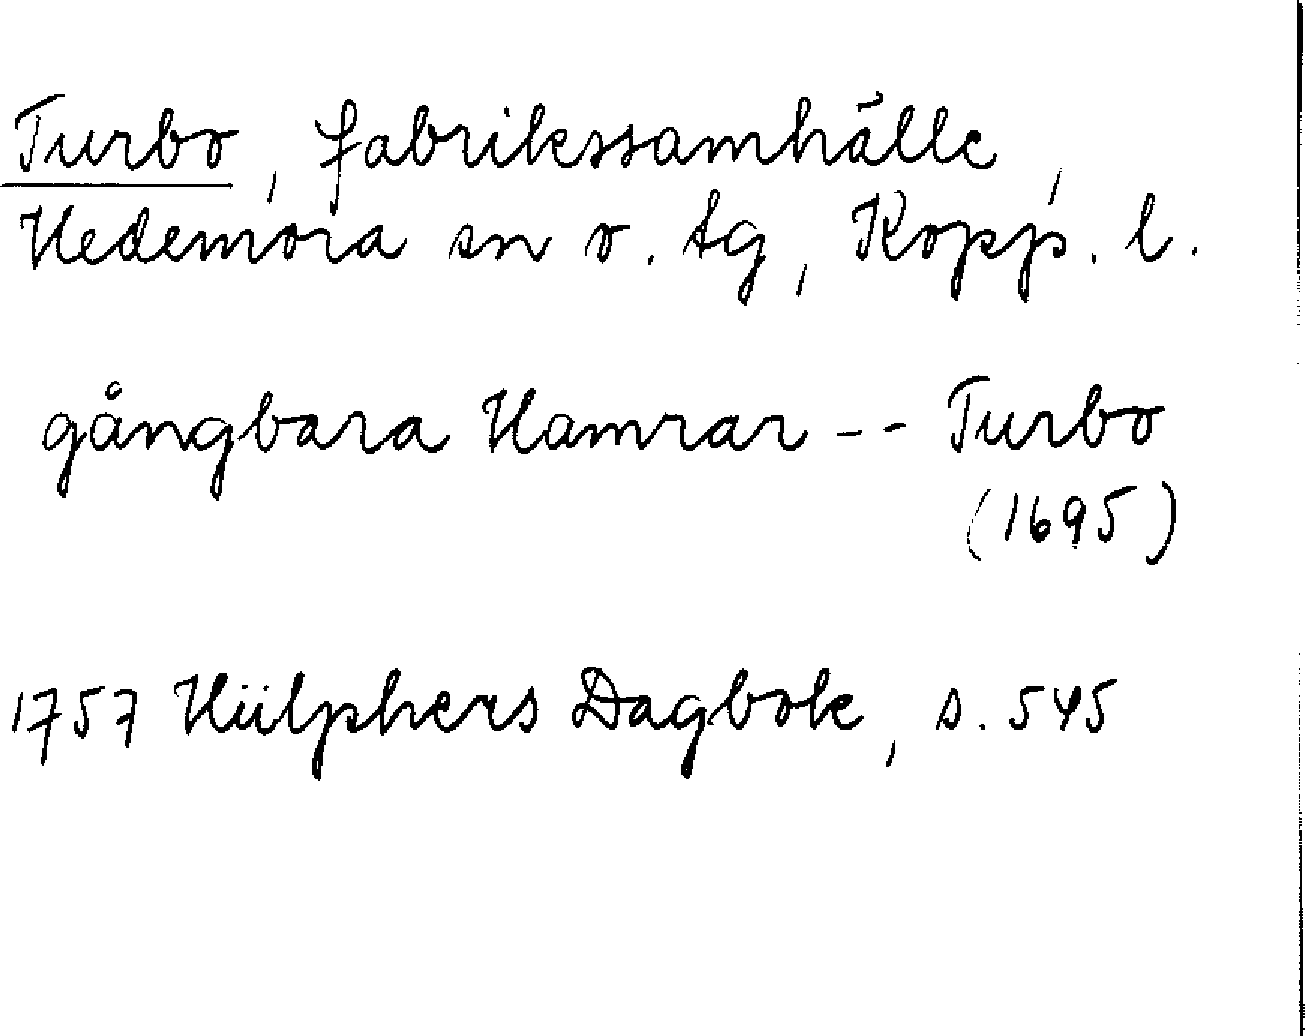 Turbo, fabrikssamhälle,
Hedemora sn o. tg, Kopp. l.
gångbara Hamrar -- Turbo
(1695)
1757 Hülphers Dagbok, s. 545